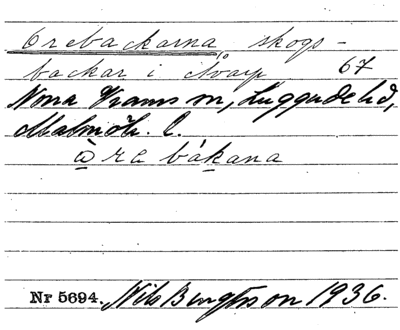 Orebackarna skogs-
backar i Svarp 67
Norra Vrams sn, Luggude hd,
Malmöh. l.
òra bákana
Nr 5694. Nils Bengtsson 1936.